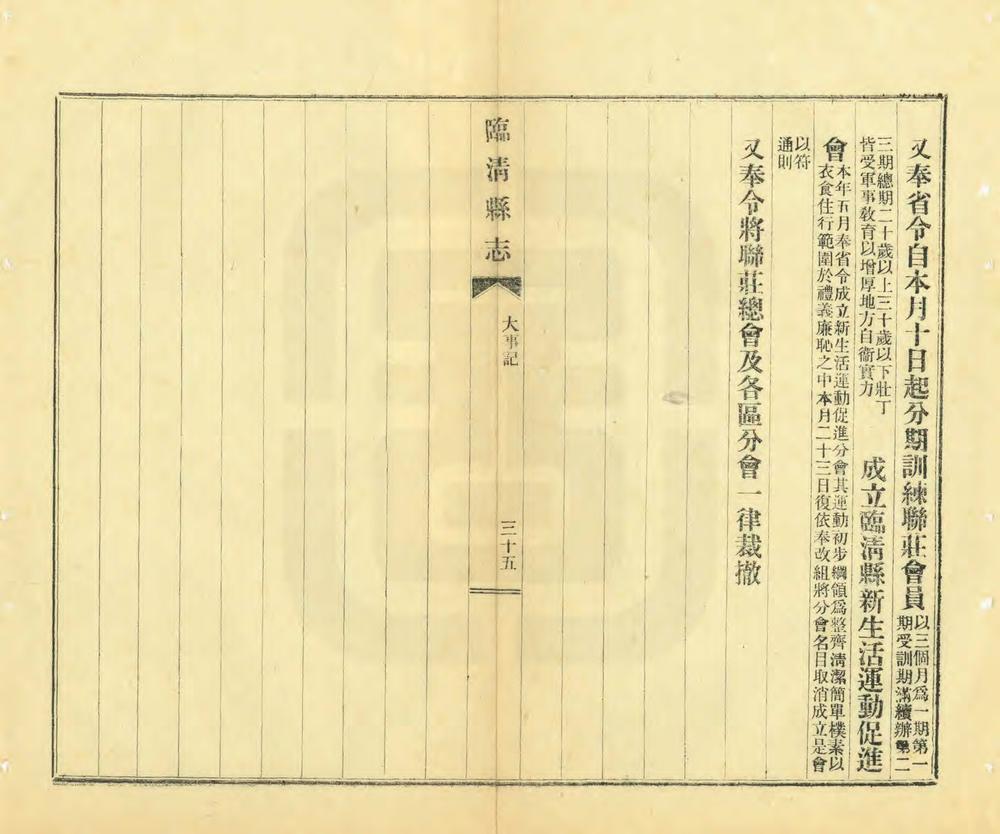 又奉省令自本月十日起分期訓練聯莊會員以三個月爲一期第一期受訓期滿續辦第二
三期總期二十歲以上三十歲以下壯丁皆受軍事教育以增厚地方自衞實力 成立臨淸縣新生活運動促進
會本年五月奉省令成立新生活運動促進分會其運動初步綱領爲整齊淸潔簡單樸素以衣食住行範圍於禮義廉恥之中本月二十三日復依奉改組將分會名目取消成立是會
以符通則
又奉令將聯莊總會及各區分會一律裁撤
臨淸縣志
大事記
三十五